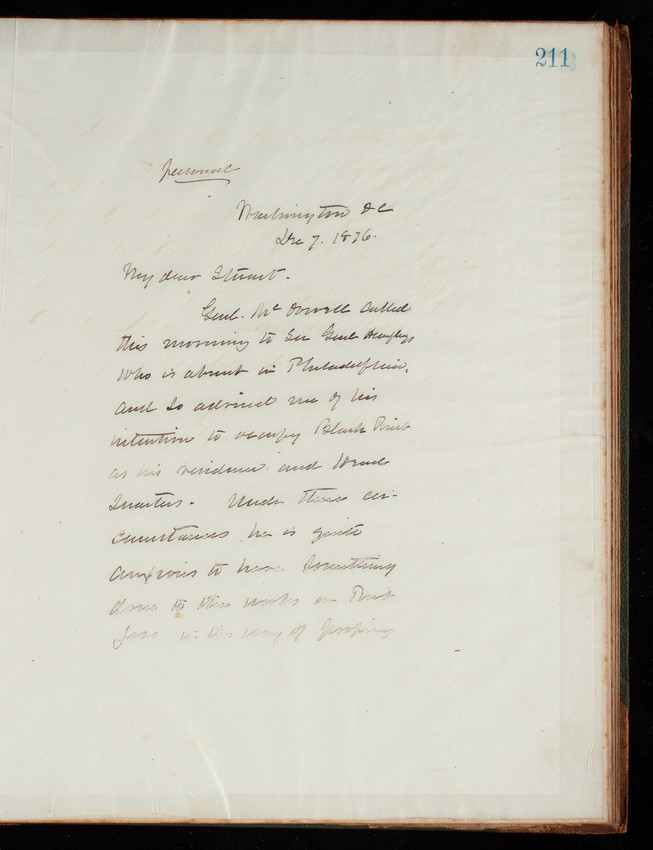 211
personal
Washington DC
Dec 7. 1876.
My dear Stuart.
Genl. McDowell called
this morning to see Genl Humphreys
who is absent in Philadelphia,
and so advised me of his
intention to occupy Black Point
as his residence and Head
Quarters. Under these cir-
cumstances he is quite
anxious to have something
done to the works on Point
Jose in the way of